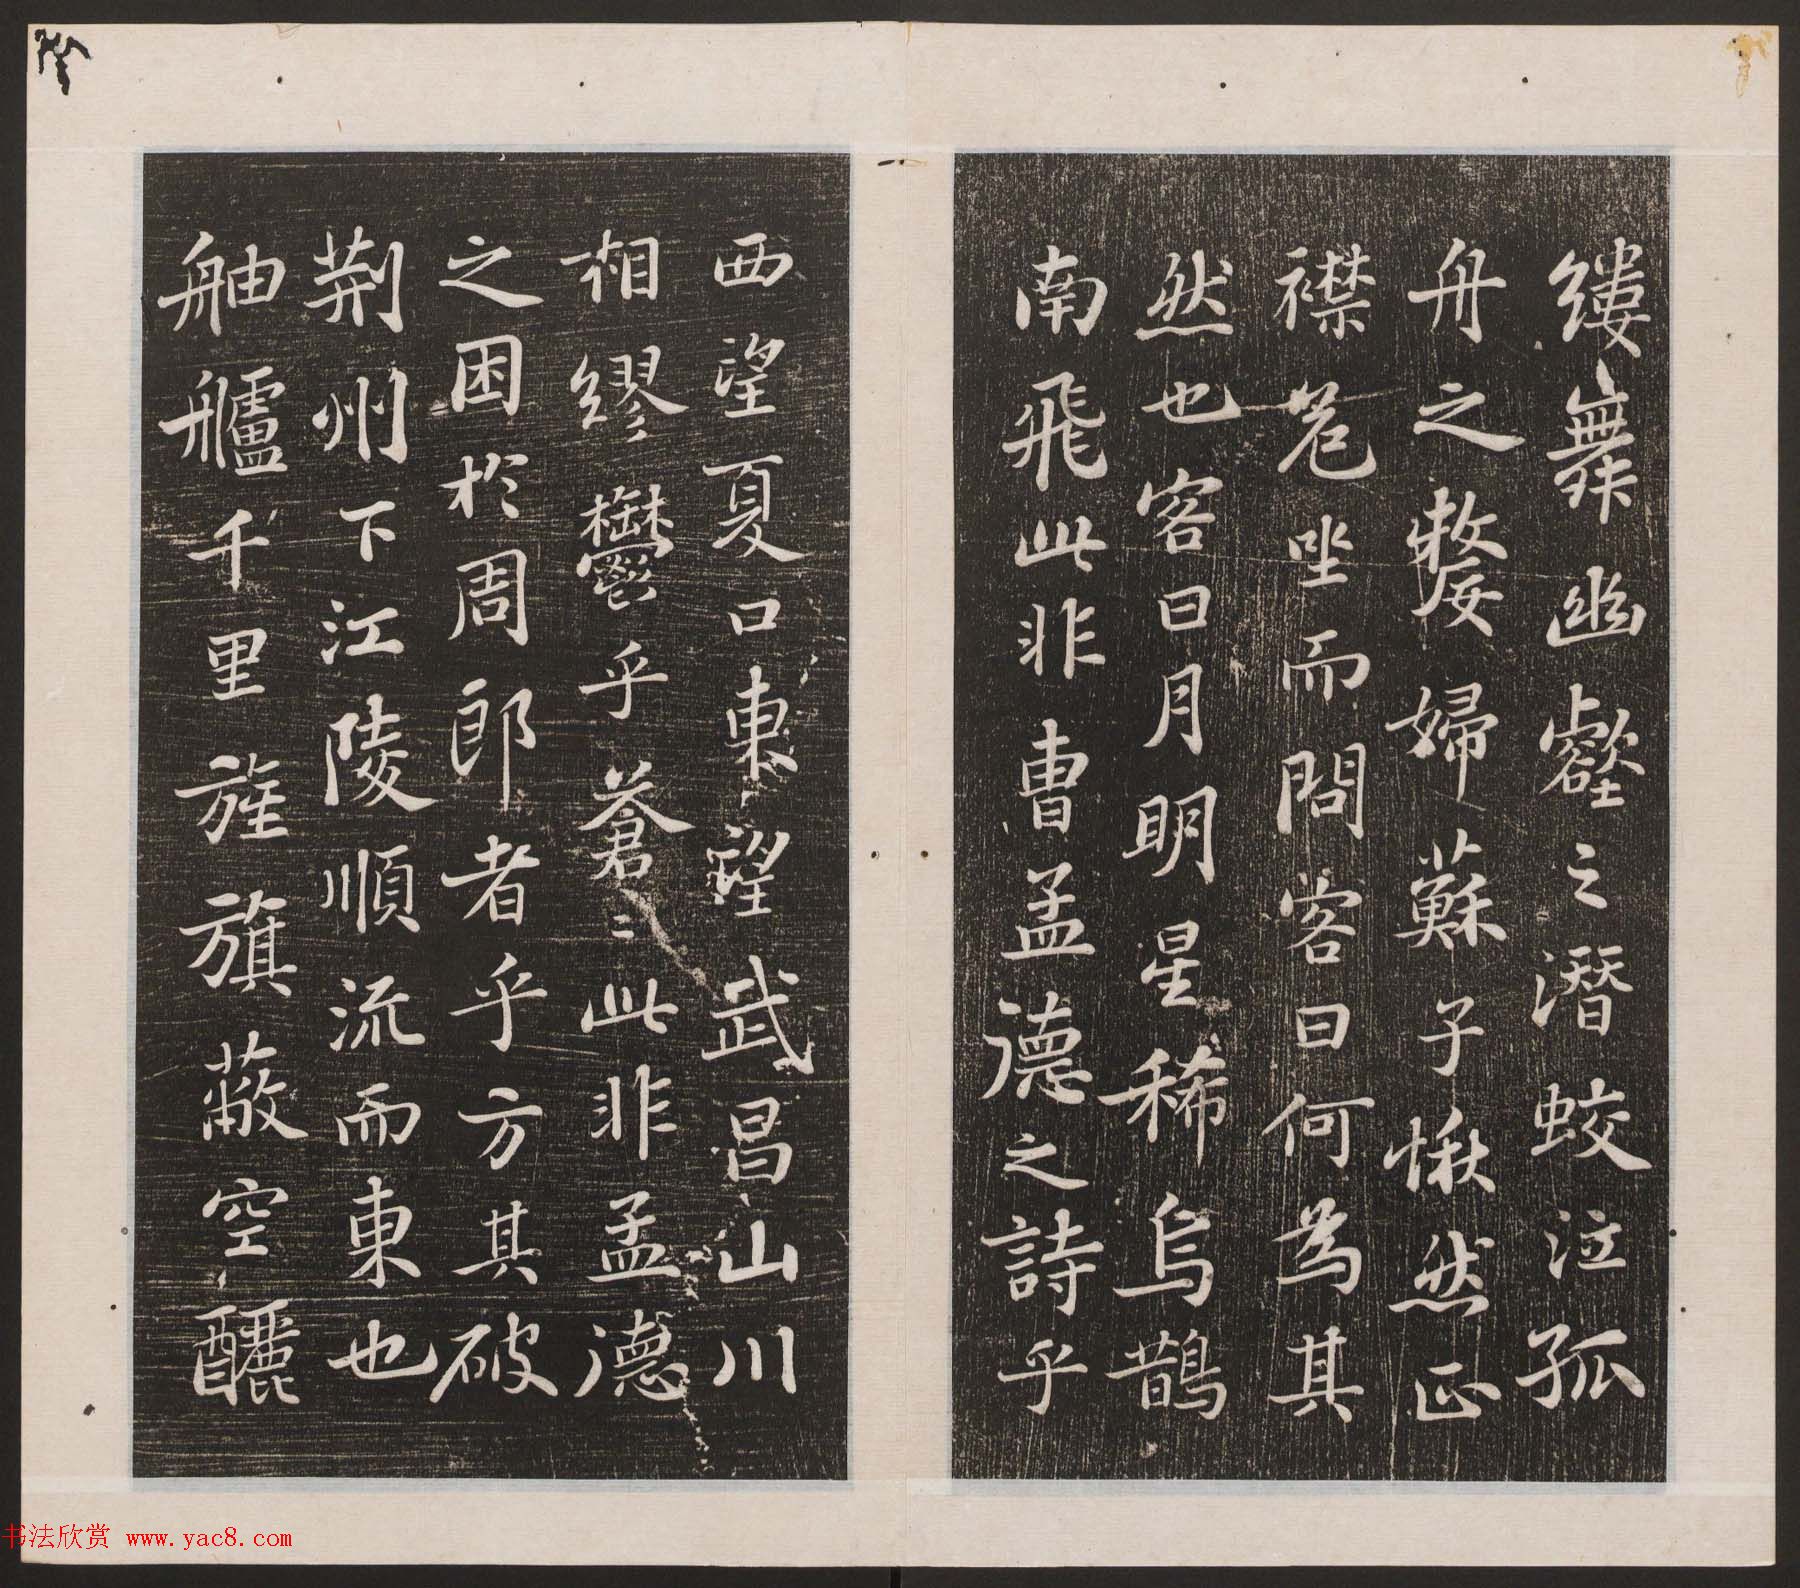 縷舞幽壑之潛蛟泣孤
舟之嫠婦蘇子愀然正
襟危坐而問客曰何為其
然也客曰月明星稀烏鵲
南飛此非曹孟德之詩乎
西望夏口東望武昌山川
相繆鬱乎蒼〻此非孟德
之困於周郎者乎方其破
荆州下江陵順流而東也
舳艫千里旌旗蔽空釃
书法欣赏 www.yac8.com